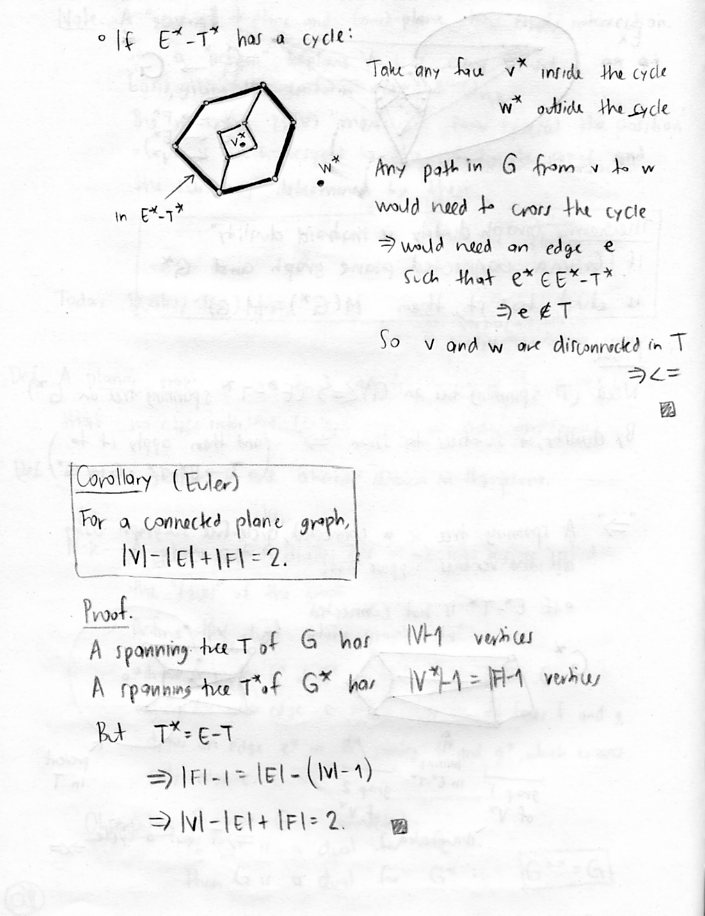 ∘ If E*-T* has a cycle:
Take any face v* inside the cycle
w* outside the cycle
v*
w*
in E*-T*
Any path in G from v to w
would need to cross the cycle
⇒ would need an edge e
such that e* ∈ E*-T*
⇒ e ∉ T
So v and w are disconnected in T
⇒<=
Corollary (Euler)
For a connected plane graph,
|V|-|E|+|F|=2.
Proof.
A spanning tree T of G has |V|-1 vertices
A spanning tree T* of G* has |V*|-1 = |F|-1 vertices
But T* = E-T
⇒ |F|-1 = |E|-(|V|-1)
⇒ |V|-|E|+|F|=2.